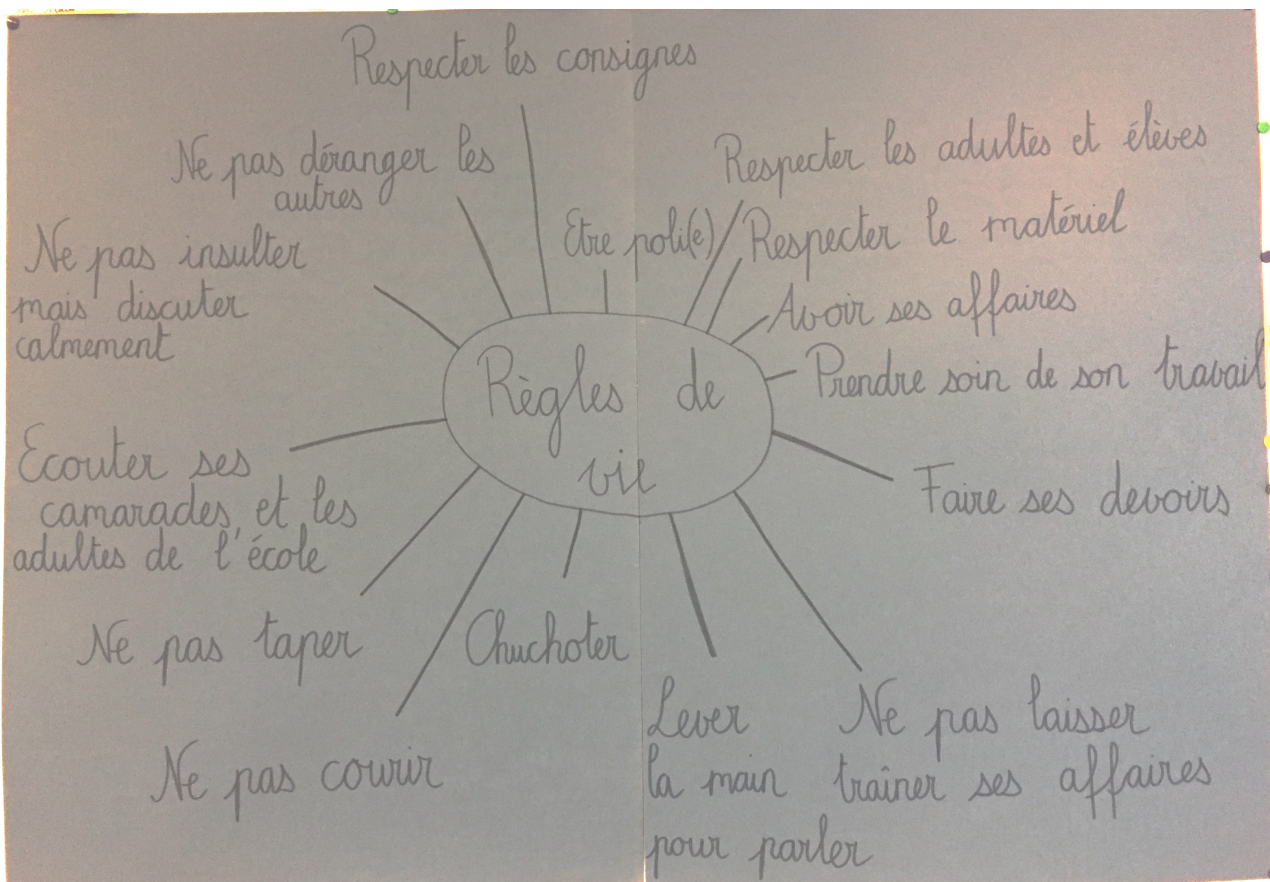 Respecter les consignes
Ne pas déranger les
autres
Respecter les adultes et élèves
Etre poli(e)
Respecter le matériel
Ne pas insulter
mais discuter
calmement
Avoir ses affaires
Prendre soin de son travail
Règles de
vie
Ecouter ses
camarades, et les
adultes de l'école
Faire ses devoirs
Ne pas taper
Chuchoter
Ne pas courir
Lever
la main
pour parler
Ne pas laisser
traîner ses affaires